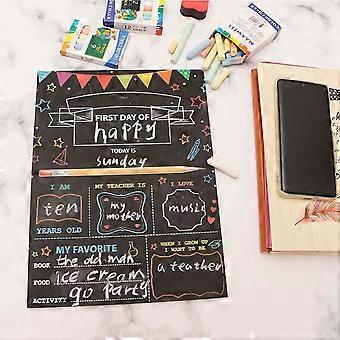 12
COLOR CHALK
MAXWELL
FIRST DAY OF
happy
TODAY IS
sunday
I AM
ten
YEARS OLD
MY TEACHER IS
my
mother
I LOVE
music
MY FAVORITE
BOOK the old man
FOOD ice cream
ACTIVITY go party
WHEN I GROW UP
I WANT TO BE
a teather